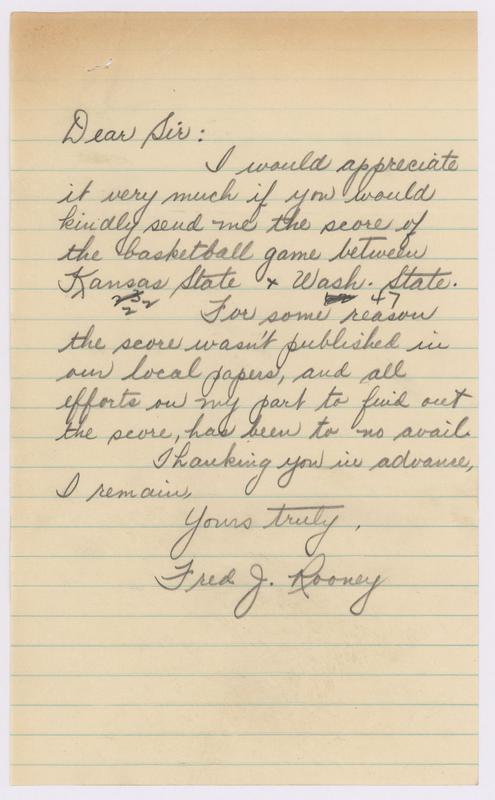 Dear Sir:
I would appreciate
it very much if you would
kindly send me the score of
the basketball game between
Kansas State & Wash. State.
47
For some reason
the score wasn't published in
our local papers, and all
efforts on my part to find out
the score, has been to no avail.
Thanking you in advance,
I remain,
Yours truly,
Fred J. Rooney